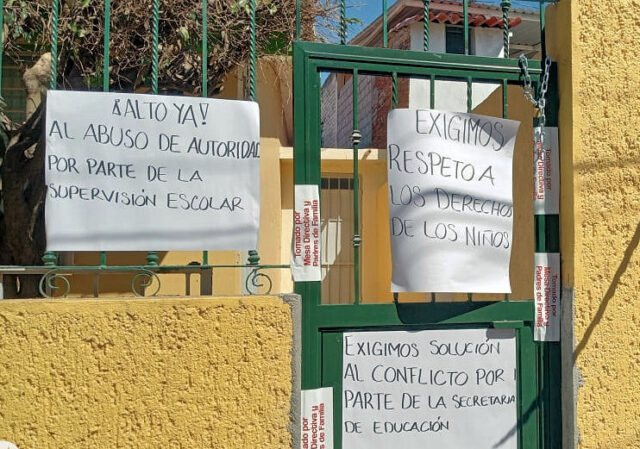 ¡¡ALTO YA!
AL ABUSO DE AUTORIDAD
POR PARTE DE LA
SUPERVISIÓN ESCOLAR
EXIGIMOS
RESPETO A
LOS DERECHOS
DE LOS NIÑOS
EXIGIMOS SOLUCIÓN
AL CONFLICTO POR
PARTE DE LA SECRETARIA
DE EDUCACIÓN
Tomado por
Mesa Directiva y
Padres de Familia
Tomado por
Mesa Directiva y
Tomado por
Mesa Directiva y
Padres de Familia
Tomado por
Directiva y
de Familia